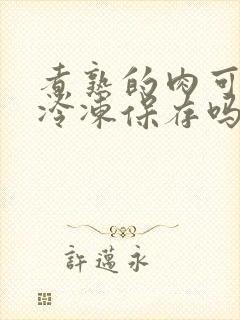 煮熟的肉可
冷冻保存吗
許邁永